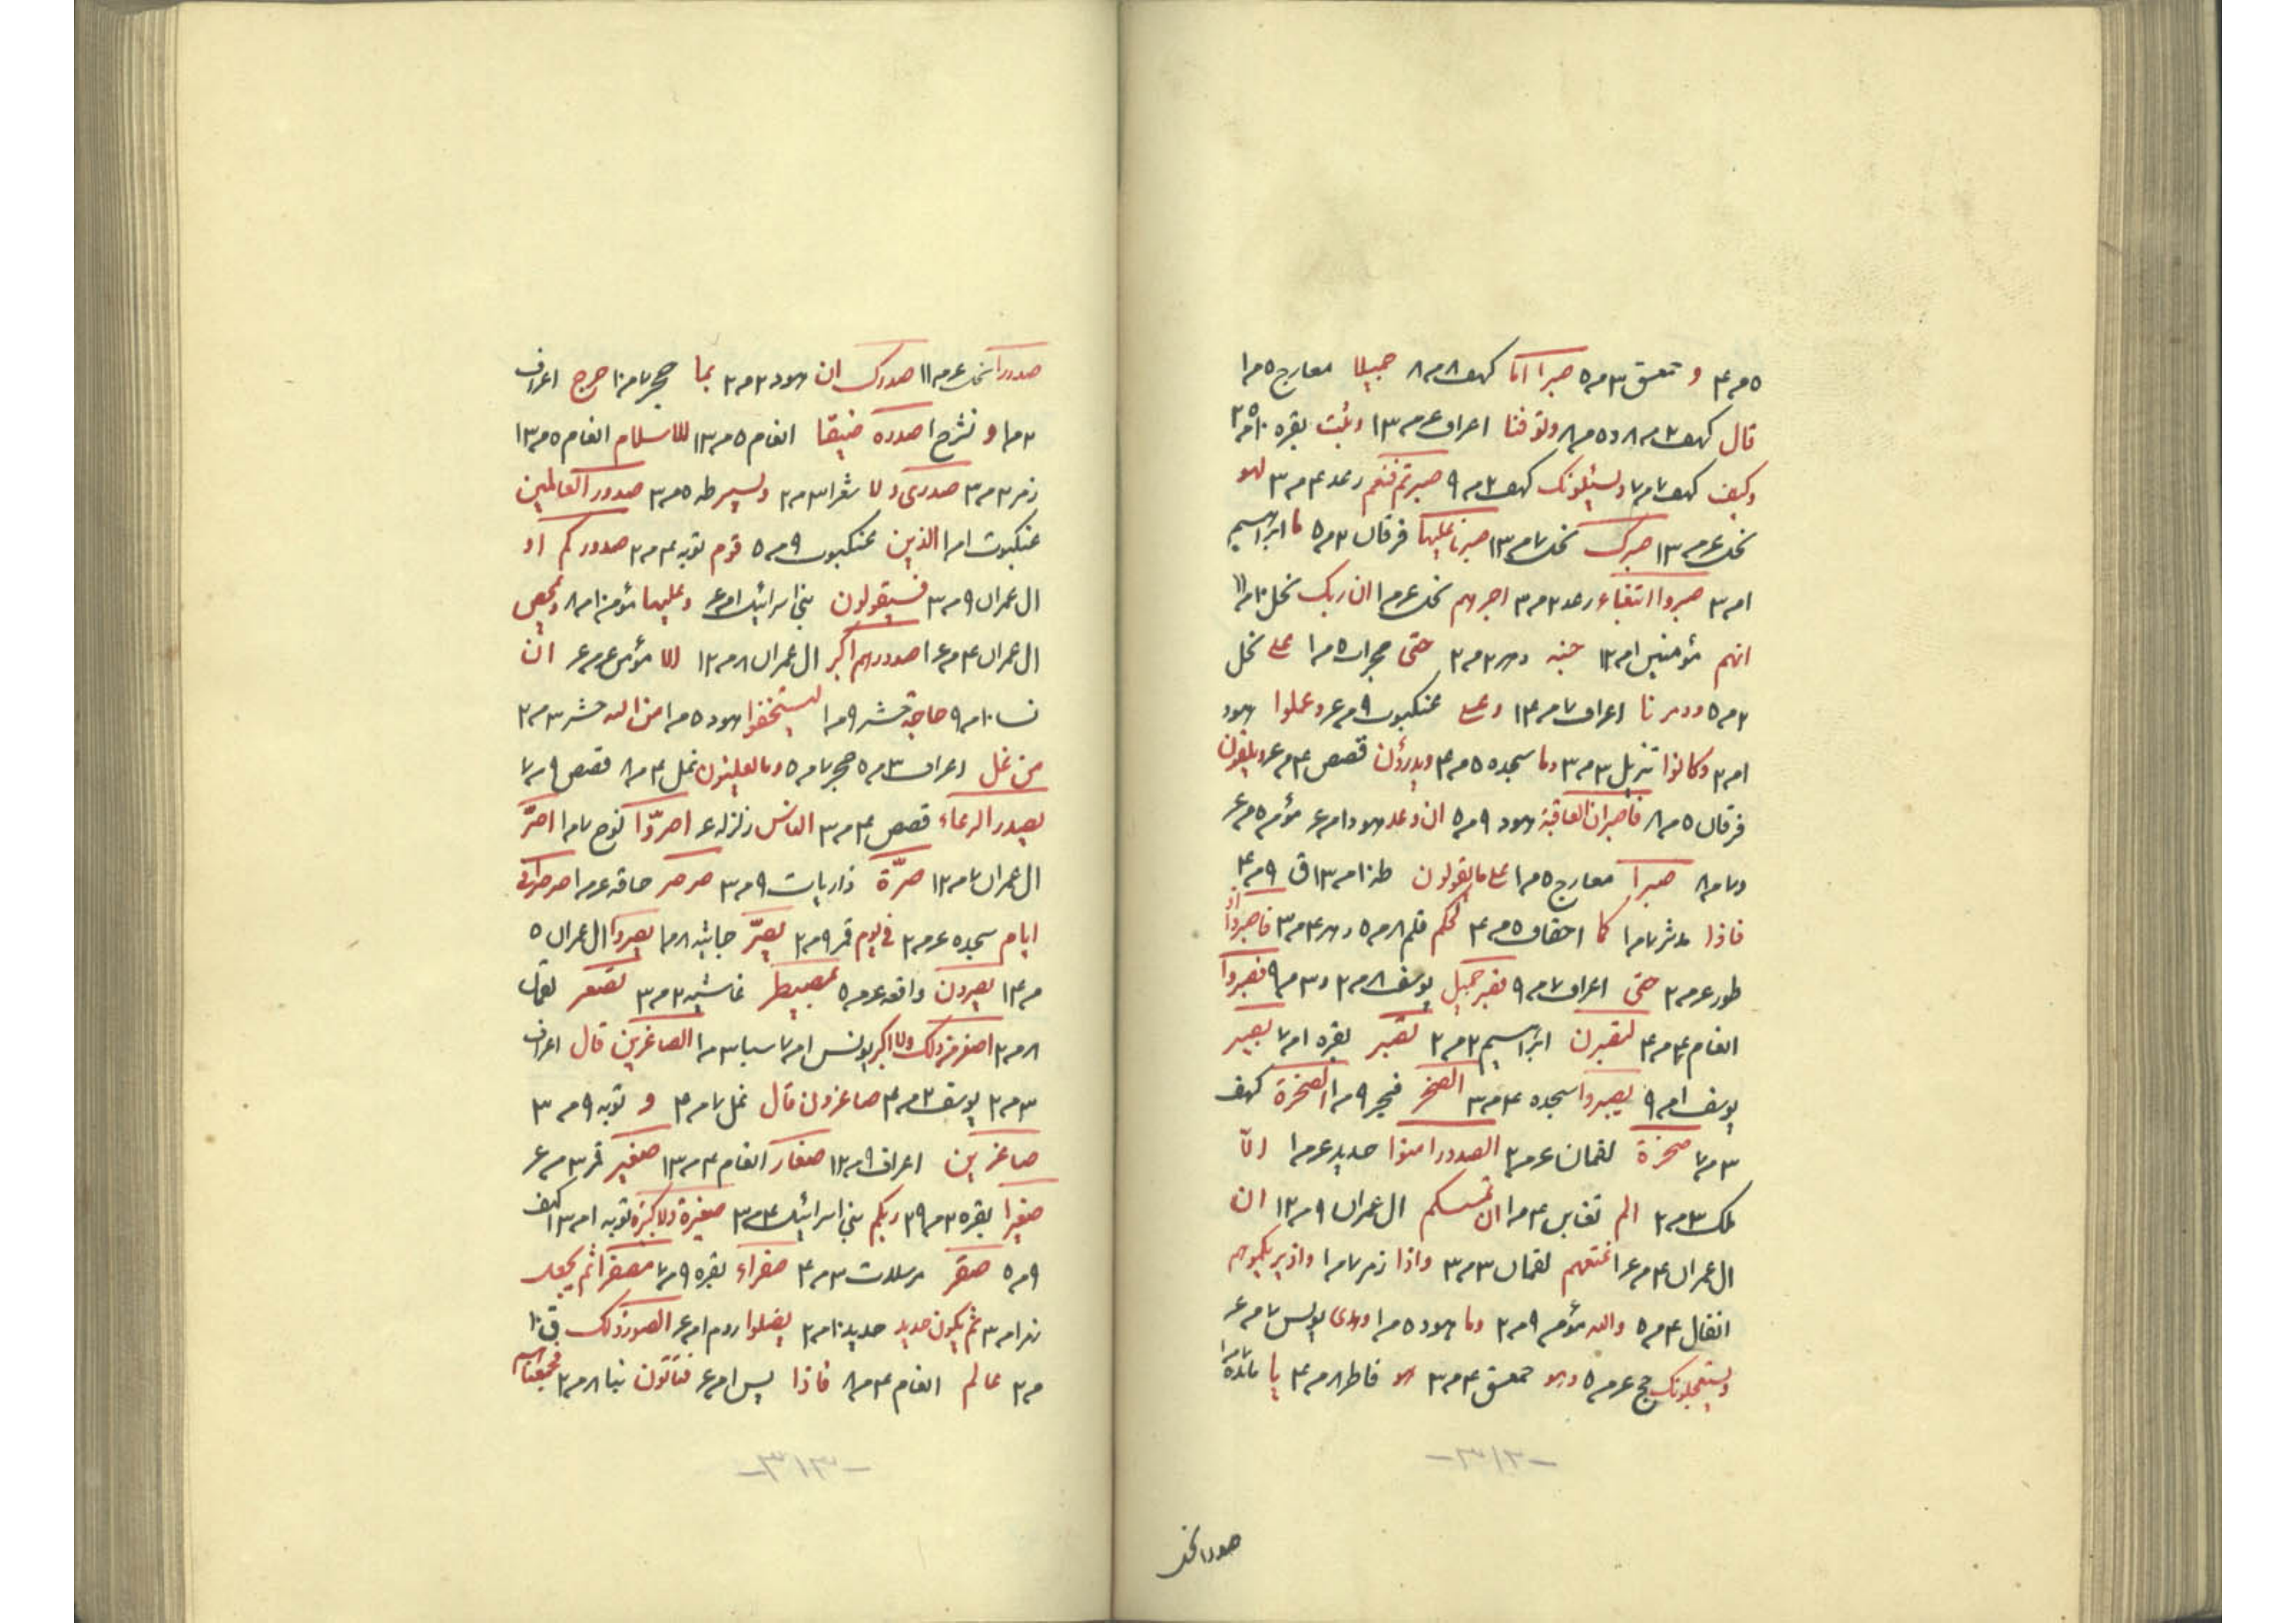 ٥م٣ و حمعسق ٣م٥ صبرا انا كهف ٨م٨ جميلا معارج ٥م١
قال كهف ٢م٨ و٥م٨ وتوفنا اعراف ع م١٣ وثبت بقره
وكيف كهف ٧م٧ ولسئلونك كهف ٢م٩ صبرتم فنعم رعد ٤م٣ لهو
نحل ع م١٣ صبرك نحل ٧م١٣ صبرنا عليها فرقان ٣م٥ ابراهيم
ا م٣ صبروا ابتغاء رعد ٢م٣ اجرهم نحل ع م١ ان ربك نحل
انهم مؤمنين ا م١٢ جنه دهر ٢م٢ حتى حجرات ٥م١ على نحل
ودمرنا اعراف ٧م١٤ وعلى عنكبوت ٩م ع وعملوا هود
ا م٢ وكانوا تنزيل ٣م٣ وما سجده ٥م٤ ويدرؤن قصص ٤م ع ويلقون
فرقان ٥م٨ فاصبر ان العاقبة هود ٩م٥ ان وعد
صبرا معارج ٥م١ على ما يقولون
فاذا مدثر ٧م١ كما احقاف ٥م٤ لحكم قلم ٨م٥ دهر ٤م٣ فاصبروا او
طور ع م٢ حتى اعراف ٧م٩ فصبر جميل يوسف ٨م٢ و٣م٩ فصبروا
انعام ٤م٤ لنصبرن ابراهيم ٢م٢ نصبر بقره ا م٧ يصبر
يوسف ا م٩ يصبروا سجده ٤م٣ الصخر فجر ٩م١ الصخرة كهف
٣م٧ صخرة لقمان ع م٢ الصدور امنوا حديد ع م١ الا
ملك ٣م٢ الم تغابن ٤م١ ان تمسسكم ال عمران ٩م١٢ ان
ال عمران ٤م ع ا نمتعهم لقمان ٣م٣ واذا زمر ٧م١ واذ يريكموهم
انفال ٤م٥ والله مؤمن ٩م٢ وما هود ٥م١ وهدى يونس ٧م ع
ويستعجلونك حج ع م٥ وهو حمعسق ٤م٣ هو فاطر ٨م٤ يا مائده
صدرا نحل
صدرا نحل ع م١١ صدرك ان هود ٢م٢ بما حجر ٧م١٠ حرج اعراف
صدره ضيقا انعام ٥م١٣ للاسلام انعام ٥م١٣
زمر ٣م٣ صدرى ولا شعرا ٣م٢ ويسر طه ٥م٣ صدور العالمين
عنكبوت ا م١ الذين عنكبوت ٩م٥ قوم توبه ٤م٢ صدوركم او
ال عمران ٩م٣ فسيقولون بنى اسرائيل ا م ع وعليها مؤمن ١٠م٨ وليمحص
ال عمران ٤م ع ا صدورهم اكبر ال عمران ٨م١٢ الا مؤمن ع م ع ان
نسا ١٠م٩ حاجة حشر ٩م١ ليستخفوا هود ٥م١ من الله حشر ٣م٢
من غل اعراف ٣م٥ حجر ٧م٥ وما يعلنون نمل ٤م٨ قصص ٩م٧
يصدر الرعاء قصص ٤م٣ الناس زلزله ع اصروا نوح ٧م١ اصر
ال عمران ٧م١٢ صرة ذاريات ٩م٣ صرصر حاقه ع م١ صرصرا فى
ايام سجده ع م٢ فى يوم قمر ٩م٢ يصر جاثيه ٨م١ يصروا ال عمران ٥
م١٤ يصرون واقعه ع م٥ بمصيطر غاشيه ٢م٣ تصعر لقمان
٨م٢ اصغر من ذلك ولا اكبر يونس ا م٧ سبا ٣م١ الصاغرين قال اعراف
٣م٢ يوسف ٢م٤ صاغرون قال نمل ٧م٤ و توبه ٩م٣
صاغرين اعراف ٩م١٢ صغار انعام ٤م١٣ صغير قمر ٣م ع
صغيرا بقره ٢م٣٩ ربكم بنى اسرائيل ٤م٣ صغيرة ولا كبيرة توبه ا م١٣ كهف
٩م٥ صفر مرسلات ٣م٤ صفراء بقره ٩م٧ مصفرا ثم يجعله
زمر ا م٣ ثم يكون حديد حديد ١٠م٢ يضلوا روم ا م ع الصور ذلك ق ١٠
م٢ عالم انعام ٤م٨ فاذا يس ا م ع فتاتون نبا ٨م٢ فجمعناهم